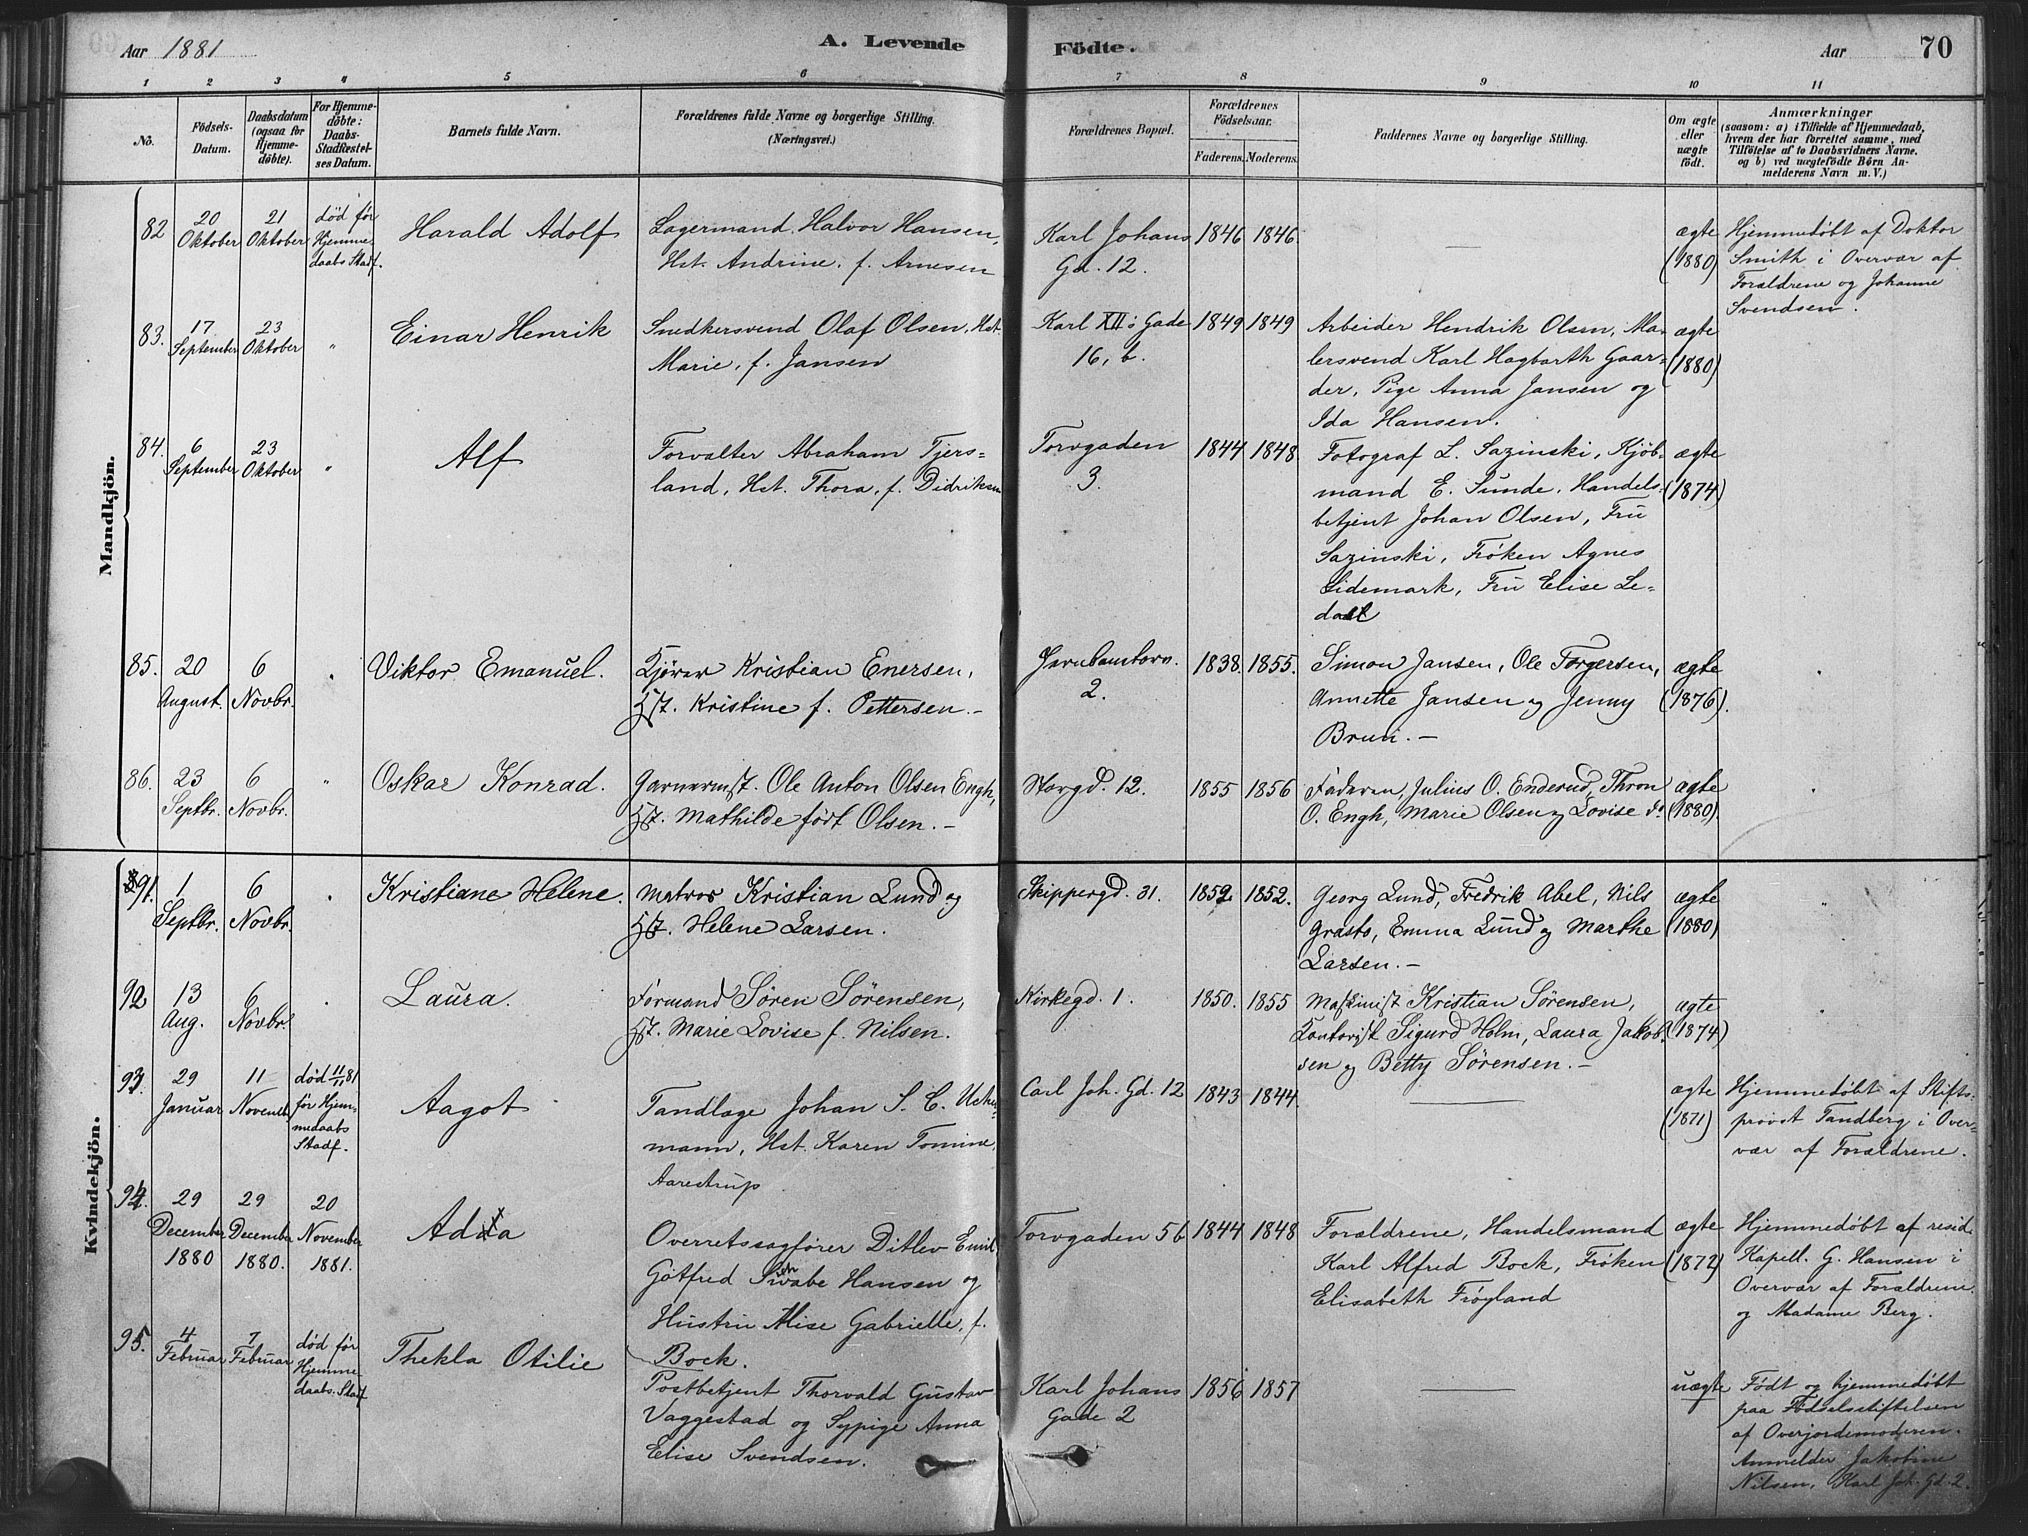 Aar 1881 A. Levende Födte. Aar 70
1 2 3 4 5 6 7 8 9 10 11
No.
Födsels-
Datum.
Daabsdatum
(ogsaa for
Hjemme-
döbte).
For Hjemme-
döbte:
Daabs-
Stadfæstel-
ses Datum.
Barnets fulde Navn.
Forældrenes fulde Navne og borgerlige Stilling.
(Næringsvei.)
Forældrenes Bopæl.
Forældrenes
Födselsaar.
Faderens. Moderens.
Faddernes Navne og borgerlige Stilling.
Om ægte
eller
uægte
födt.
Anmærkninger
(saasom: a) i Tilfælde af Hjemmedaab,
hvem der har forrettet samme, med
Tilföielse af to Daabsvidners Navne.
og b) ved uægtefödte Börn An-
melderens Navn m. V.)
Mandkjön.
82
20
Oktober
21
Oktober
død før
Hjemme-
daabs Stadf.
Harald Adolf
Lagermand Halvor Hansen,
Hst. Andrine, f. Arnesen
Karl Johans
Gd. 12.
1846 1846.
ægte
(1880)
Hjemmedøbt af Doktor
Smith i Overvær af
Forældrene og Johanne
Svendsen.
83.
17
September
23
Oktober
"
Einar Henrik
Snedkersvend Olaf Olsen, Hst.
Marie, f. Jansen
Karl XII's Gade
16, b.
1849 1849
Arbeider Hendrik Olsen, Ma-
lersvend Karl Hagbarth Gaar-
der, Pige Anna Jansen og
Ida Hansen.
ægte
(1880)
84.
6
September
23
Oktober
"
Alf
Forvalter Abraham Tjers-
land, Hst. Thora, f. Didriksen
Torvgaden
3.
1844 1848.
Fotograf L. Sazinski, Kjøb-
mand E. Sunde, Handels-
betjent Johan Olsen, Fru
Sazinski, Frøken Agnes
Lidemark, Fru Elise Le-
daal
ægte
(1874)
85.
20
August.
6
Novbr.
"
Viktor Emanuel.
Kjører Kristian Enersen,
Hst. Kristine f. Pettersen.-
Jernbantorv.
2.
1838. 1855.
Simon Jansen, Ole Torgersen,
Annette Jansen og Jenny
Brun.-
ægte
(1876).
86.
23
Septbr.
6
Novbr.
"
Oskar Konrad.
Garvermst. Ole Anton Olsen Engh,
Hst. Mathilde født Olsen.-
Storgd. 12.
1855 1856
Faderen, Julius O. Enderud, Thron
O. Engh, Marie Olsen og Lovise do.
ægte
(1880).
Kvindekjön.
91.
1
Septbr.
6
Novbr.
"
Kristiane Helene.
Matros Kristian Lund og
Hst. Helene Larsen.
Skippergd. 31.
1852. 1852.
Georg Lund, Fredrik Abel, Nils
Grasto, Emma Lund og Marthe
Larsen.-
ægte
(1880)
92
13
Aug.
6
Novbr.
"
Laura.
Formand Søren Sørensen,
Hst. Marie Lovise f. Nilsen.
Kirkegd. 1.
1850. 1855
Maskinist Kristian Sørensen,
Kontorist Sigurd Holm, Laura Jakob-
sen og Betty Sørensen.-
ægte
(1874)
93.
29
Januar
11
Novemb.
død 11/11 81
før Hjem-
medaabs
Stadf.
Aagot
Tandlæge Johan S. C. Ucher-
mann, Hst. Karen Tomine,
Aarestrup
Carl Joh. Gd. 12
1843 1844
ægte
(1871)
Hjemmedøbt af Stifts-
provst Tandberg i Over-
vær af Forældrene.
94.
29
December
1880
29
December
1880.
20
November
1881.
Adda
Overretssagfører Ditlev Emil
Gotfred Swabe Hansen og
Hustru Alise Gabrielle, f.
Bock.
Torvgaden 5b
1844 1848
Forældrene, Handelsmand
Karl Alfred Bock, Frøken
Elisabeth Frøyland
ægte
(1872)
Hjemmedøbt af resid.
Kapell. G. Hansen i
Overvær af Forældrene
og Madame Berg.
95.
4
Februar
7
Februar
død før
Hjemme-
daabs Stadf
Thekla Otilie
Postbetjent Thorvald Gustav
Vaggestad og Sypige Anna
Elise Svendsen.
Karl Johans
Gade 2
1856 1857
uægte
Født og hjemmedøbt
paa Fødselsstiftelsen
af Overjordemoderen.
Anmelder Jakobine
Nilsen, Karl Joh. Gd. 2.